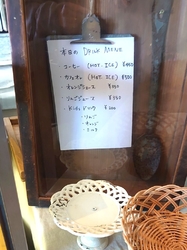 本日の DRINK MENU
・コーヒー (HOT. ICE) ¥450
・カフェオレ (HOT. ICE) ¥500
・オレンジジュース ¥350
・リンゴジュース ¥350
・りんご
・オレンジ
・ミルク